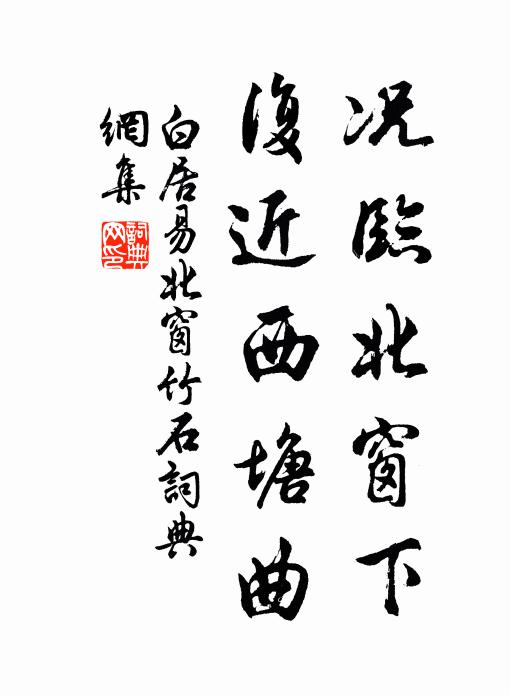 况臨北窗下
復近西塘曲
白居易北窗竹石詞典
網集
詞典
网印